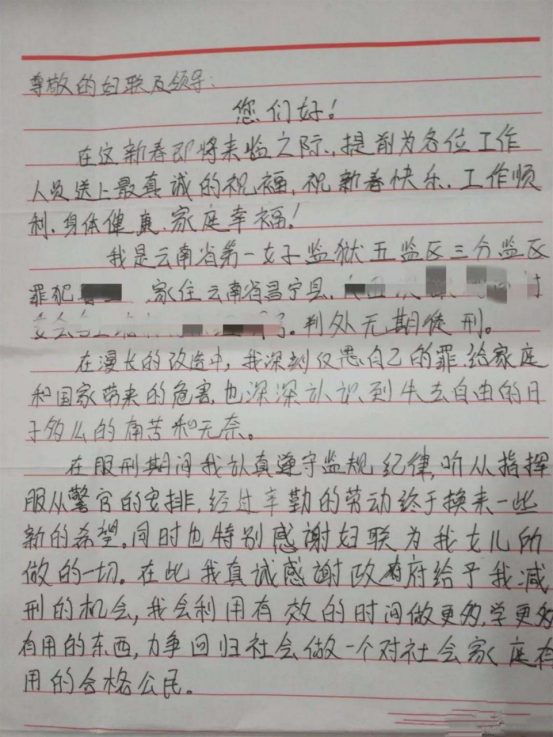 尊敬的妇联及领导:
您们好!
在这新春即将来临之际,提前为各位工作
人员送上最真诚的祝福,祝新春快乐、工作顺
利、身体健康、家庭幸福!
我是云南省第一女子监狱五监区三分监区
罪犯 ,家住云南省昌宁县,
判处无期徒刑。
在漫长的改造中,我深刻反悉自己的罪给家庭
和国家带来的危害,也深深认识到失去自由的日
子多么的痛苦和无奈。
在服刑期间我认真遵守监规纪律,听从指挥
服从警官的安排,经过辛勤的劳动终于换来一些
新的希望。同时也特别感谢妇联为我女儿所
做的一切。在此我真诚感谢政府给于我减
刑的机会,我会利用有效的时间做更多,学更多
有用的东西,力争回归社会做一个对社会家庭有
用的合格公民。